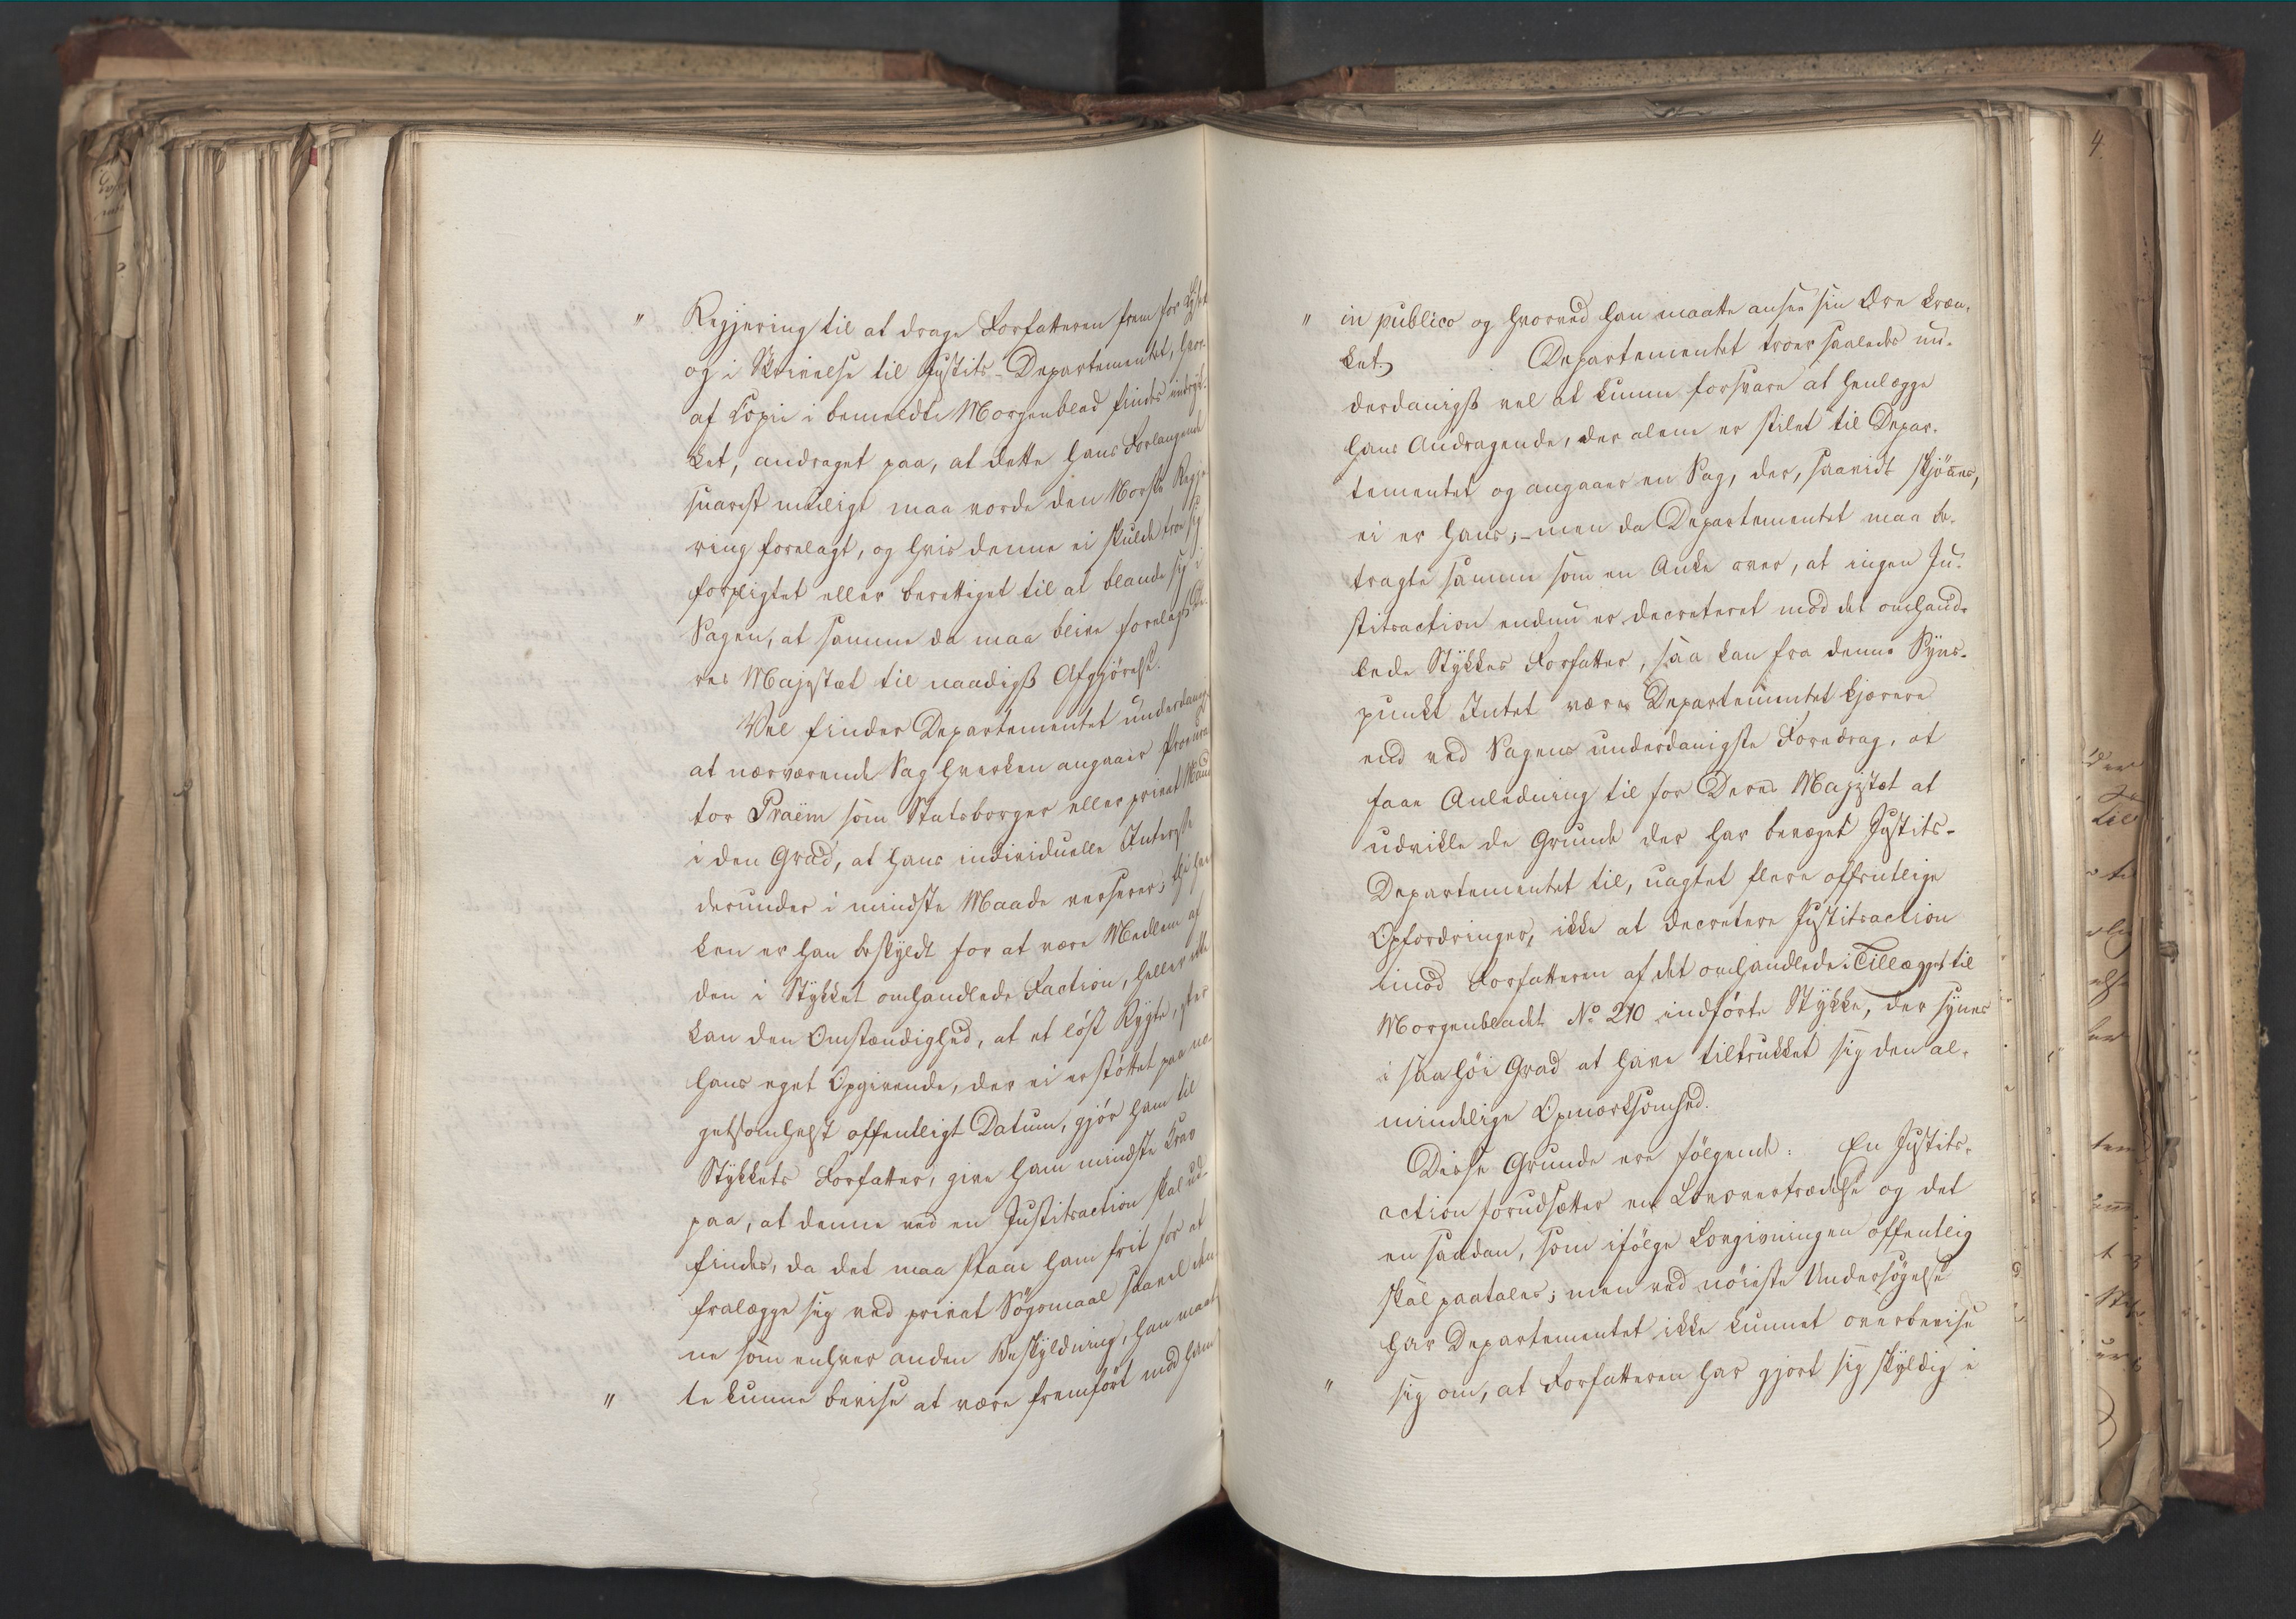 " Regjering til at drage Forfatteren frem for Lyset
og i Skrivelse til Justits-Departementet, hvor-
af Copie i bemeldte Morgenblad findes indryk-
ket, andraget paa, at dette hans Forlangende
snarest mueligt maa vorde den Norske Regje-
ring forelagt, og hvis denne ei skulde troe sig
forpligtet eller berettiget til at blande sig i
Sagen, at samme da maa blive forelagt De-
res Majestæt til naadigst Afgjørelse.
Vel finder Departementet underdanigst
at nærværende Sag hverken angaaer Procura-
tor Praëm som Statsborger eller privat Mand
i den Grad, at hans individuelle Interesse
derunder i mindste Maade verserer; thi hver-
ken er han beskyldt for at være Medlem af
den i Stykket omhandlede Faction, heller ikke
kan den Omstændighed, at et løst Rygte, efter
hans eget Opgivende, der ei er støttet paa no-
getsomhelst offentligt Datum, gjør ham til
Stykkets Forfatter, give ham mindste Krav
paa, at denne ved en Justitsaction skal ud-
findes, da det maa staae ham frit for at
fralægge sig ved privat Søgsmaal saavel den-
ne som enhver anden Beskyldning, han maat-
" te kunne bevise at være fremført mod ham
" in publico og hvorved han maatte ansee sin Ære kræn-
ket. Departementet troer saaledes un-
derdanigst vel at kunne forsvare at henlægge
hans Andragende, der alene er stilet til Depar-
tementet og angaaer en Sag, der, saavidt skjønnes,
ei er hans; – men da Departementet maa be-
tragte samme som en Anke over, at ingen Ju-
stitsaction endnu er decreteret mod det omhand-
lede Stykkes Forfatter, saa kan fra denne Syns-
punkt Intet være Departementet kjærere
end ved Sagens underdanigste Foredrag, at
faae Anledning til for Deres Majestæt at
udvikle de Grunde der har bevæget Justits-
Departementet til, uagtet flere offentlige
Opfordringer, ikke at decretere Justitsaction
imod Forfatteren af det omhandlede i Tillægget til
Morgenbladet No 210 indførte Stykke, der synes
i saa høi Grad at have tiltrukket sig den al-
mindelige Opmærksomhed.
Disse Grunde ere følgende: En Justits-
action forudsætter en Lovovertrædelse og det
en saadan, som ifølge Lovgivningen offentlig
skal paatales; men ved nøieste Undersøgelse
har Departementet ikke kunnet overbevise
" sig om, at Forfatteren har gjort sig skyldig i
4.